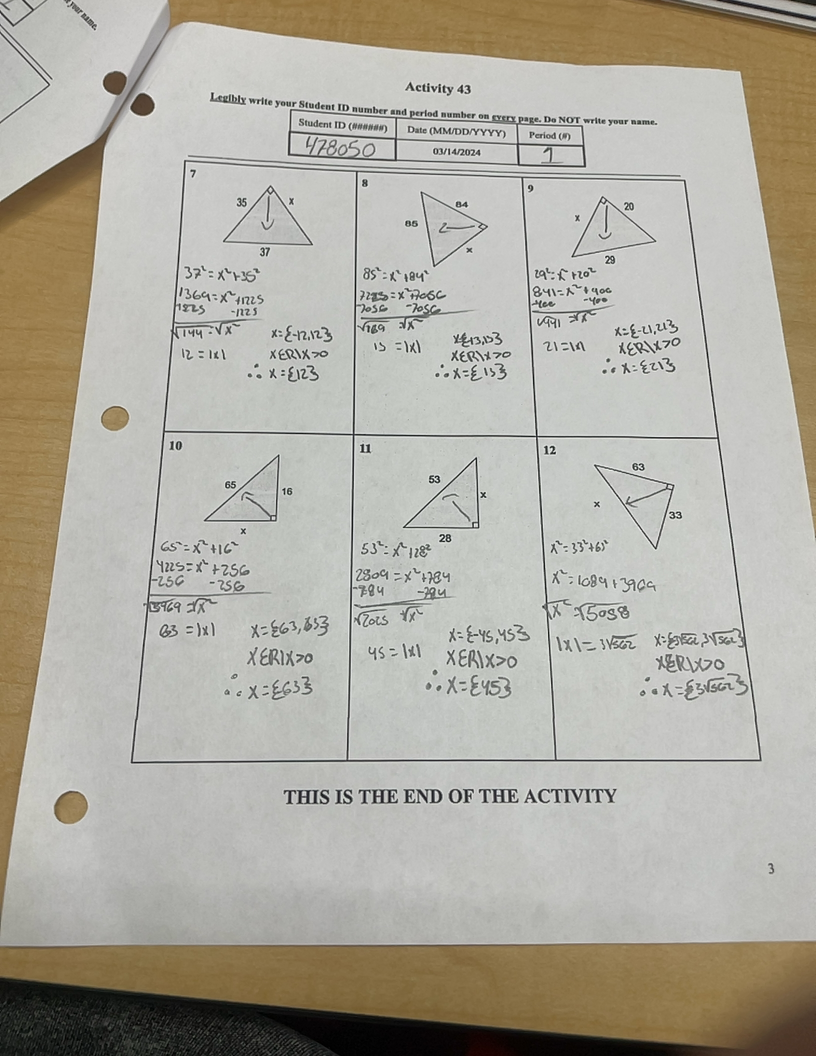 your name.
Activity 43
Legibly write your Student ID number and period number on every page. Do NOT write your name.
Student ID (######) Date (MM/DD/YYYY) Period (#)
478050 03/14/2024 1
7
35 x
37
37² = x² + 35²
1369 = x² + 1225
-1225
√144 = √x² x = {-12, 12}
12 = |x| XƐR|X>0
∴ x = {12}
8
84
85
x
85² = x² + 84²
= x² + 7056
-7056 -7056
√169 √x²
13 = |x|
XƐR|X>0
∴ x = {13}
9
20
x
29
29² = x² + 20²
841 = x² + 400
-400 -400
= √x² x = {-21, 21}
21 = |x| XƐR|X>0
∴ x = {21}
10
65 16
x
65² = x² + 16²
4225 = x² + 256
-256 -256
√3969 = √x²
63 = |x|
XƐR|X>0
∴ x = {63}
11
53
x
28
53² = x² + 28²
2809 = x² + 784
-784 -784
√2025 √x²
x = {-45, 45}
45 = |x| XƐR|X>0
∴ x = {45}
12
63
x
33
x² = 33² + 63²
x² = 1089 + 3969
√x² = √5058
|x| = 3√562
XƐR|X>0
∴ x = {3√562}
THIS IS THE END OF THE ACTIVITY
3